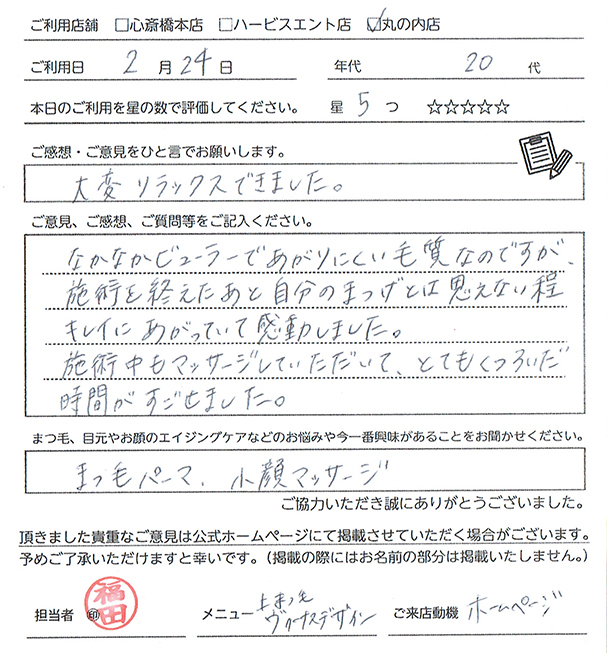 ご利用店舗 □心斎橋本店 □ハービスエント店 ☑丸の内店
ご利用日 2月24日 年代 20代
本日のご利用を星の数で評価してください。 星5つ ☆☆☆☆☆
ご感想・ご意見をひと言でお願いします。
大変リラックスできました。
ご意見、ご感想、ご質問等をご記入ください。
なかなかビューラーであがりにくい毛質なのですが、
施術を終えたあと自分のまつげとは思えない程
キレイにあがっていて感動しました。
施術中もマッサージしていただいて、とてもくつろいだ
時間がすごせました。
まつ毛、目元やお顔のエイジングケアなどのお悩みや今一番興味があることをお聞かせください。
まつ毛パーマ、小顔マッサージ
ご協力いただき誠にありがとうございました。
頂きました貴重なご意見は公式ホームページにて掲載させていただく場合がございます。
予めご了承いただけますと幸いです。（掲載の際にはお名前の部分は掲載いたしません。）
担当者 ㊞ 福田 メニュー 上まつ毛 ヴィーナスデザイン ご来店動機 ホームページ